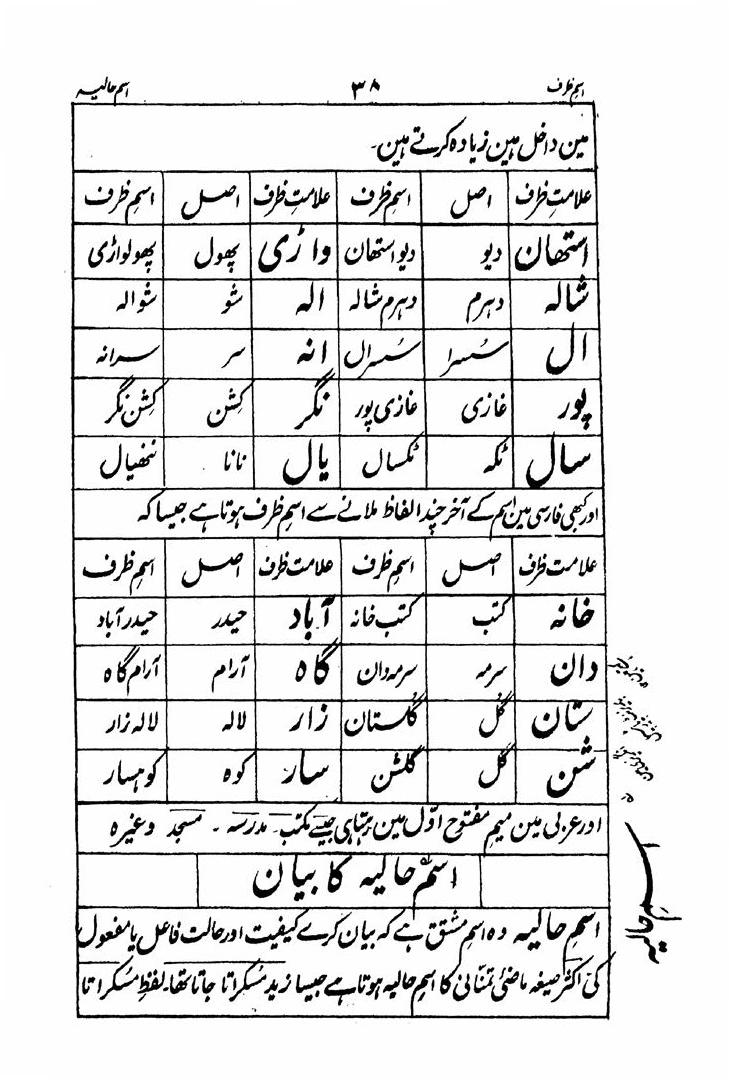 اسم ظرف ۳۸ اسم حالیہ
مین داخل ہین زیادہ کرتے ہین۔
علامت ظرف اصل اسم ظرف علامت ظرف اصل اسم ظرف
استھان دیو دیو استھان واڑی پھول پھولواڑی
شالہ دہرم دہرم شالہ الہ شو شوالہ
ال سُسرا سُسرال انہ سر سرانہ
پور غازی غازی پور نگر کِشن کِشن نگر
سال ٹکہ ٹکسال یال نانا ننھیال
اور کبھی فارسی مین اسم کے آخر چند الفاظ ملانے سے اسم ظرف ہوتا ہے جیسا کہ
علامت ظرف اصل اسم ظرف علامت ظرف اصل اسم ظرف
خانہ کتب کتب خانہ آباد حیدر حیدر آباد
دان سرمہ سرمہ دان گاہ آرام آرام گاہ
ستان گُل گلستان زار لالہ لالہ زار
شن گل گلشن سار کوہ کوہسار
اور عربی مین میم مفتوح اوّل مین رہتا ہی جیسے مکتب۔ مدرسہ ۔ مسجد وغیرہ
اسم حالیہ کا بیان
اسم حالیہ وہ اسم مشتق ہے کہ بیان کرے کیفیت اور حالت فاعل یا مفعول
کی اکثر صیغہ ماضی تمنّائی کا اسم حالیہ ہوتا ہے جیسا زید مسکراتا جاتا تھا۔ لفظ مسکراتا
اسم حالیہ